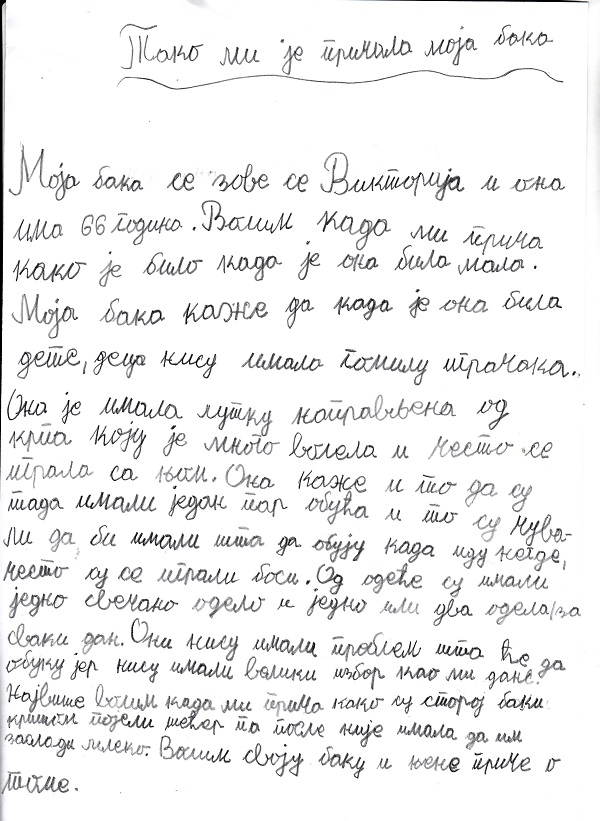 Тако ми је причала моја бака
Моја бака се зове се Викторија и она
има 66 година. Волим када ми прича
како је било када је она била мала.
Моја бака каже да када је она била
дете, деца нису имала гомилу играчака..
Она је имала лутку направљена од
крпа коју је много волела и често се
играла са њом. Она каже и то да су
тада имали један пар обућа и то су чува-
ли да би имали шта да обују када иду негде,
често су се играли боси. Од одеће су имали
једно свечано одело и једно или два одела за
сваки дан. Они нису имали проблем шта ће да
обуку јер нису имали велики избор као ми данс.
Највише волим када ми прича како су старој баки
кришом појели шећер па после није имала да им
заслади млеко. Волим своју баку и њене приче о
томе.